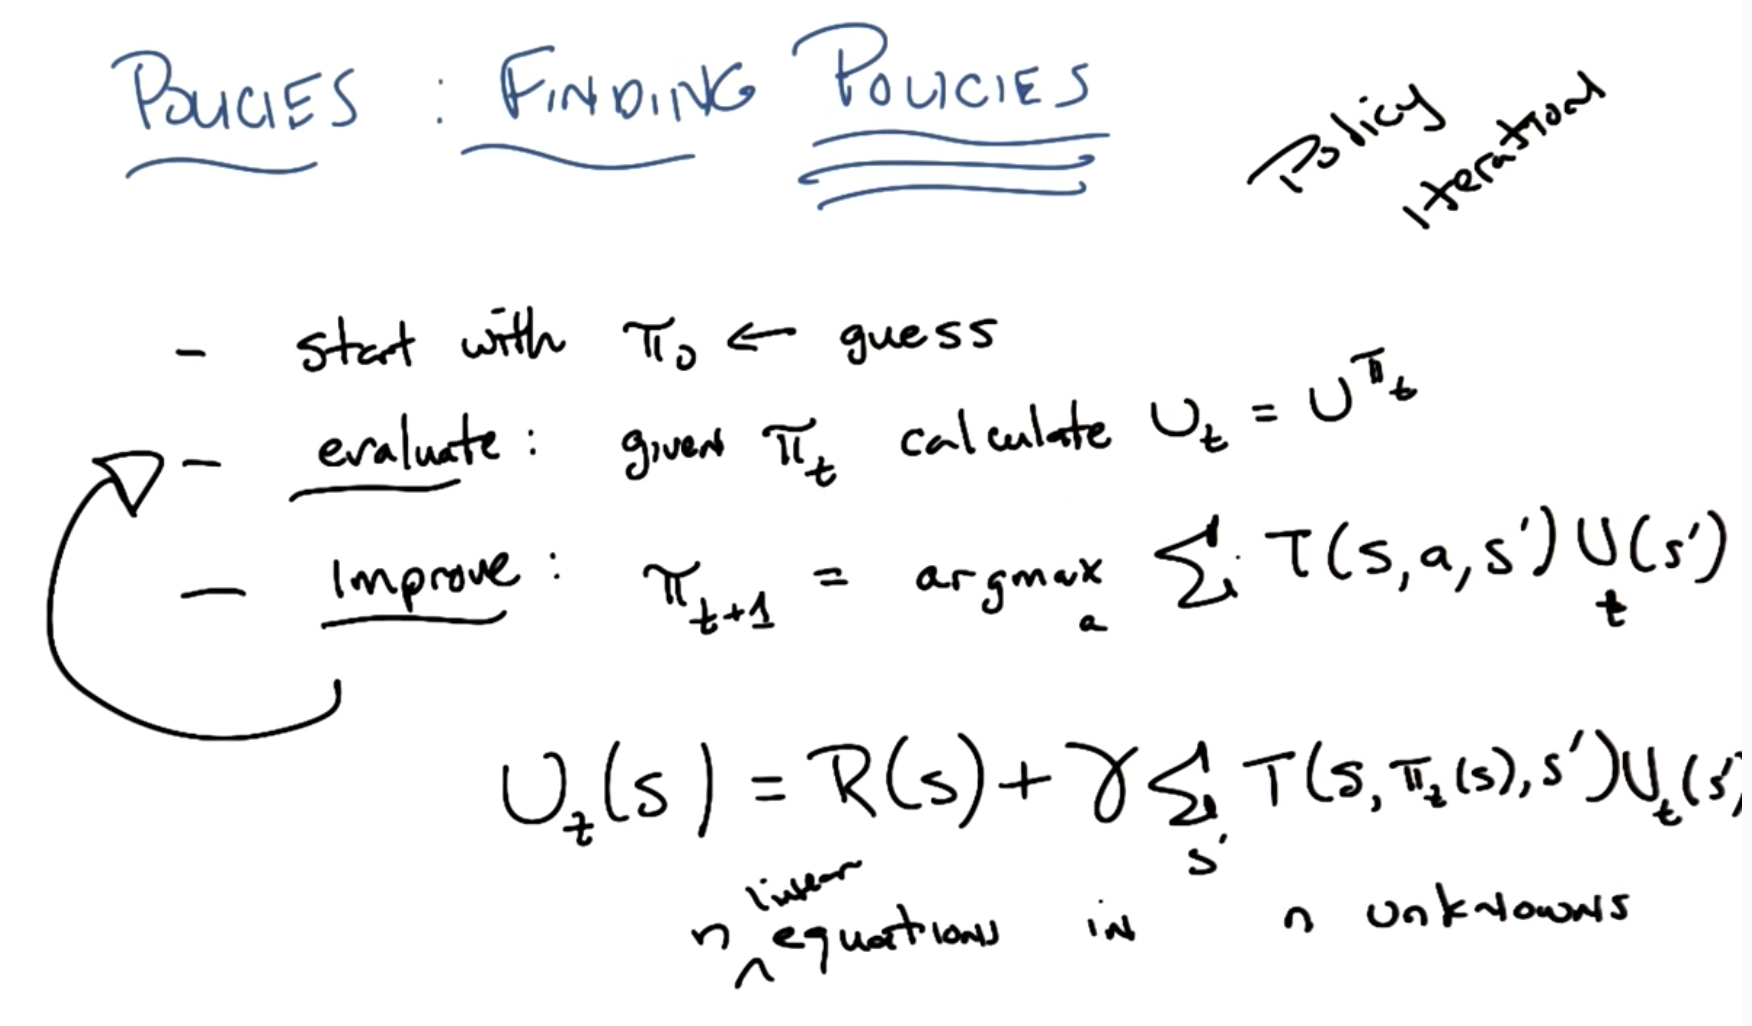 POLICIES : FINDING POLICIES
Policy
Iteration
- start with π₀ ← guess
- evaluate: given π_t calculate U_t = U^π_t
- Improve: π_t+1 = argmax_a Σ T(s,a,s') U_t(s')
U_t(s) = R(s) + γ Σ_s' T(s, π_t(s), s') U_t(s')
n ^linear equations in n unknowns